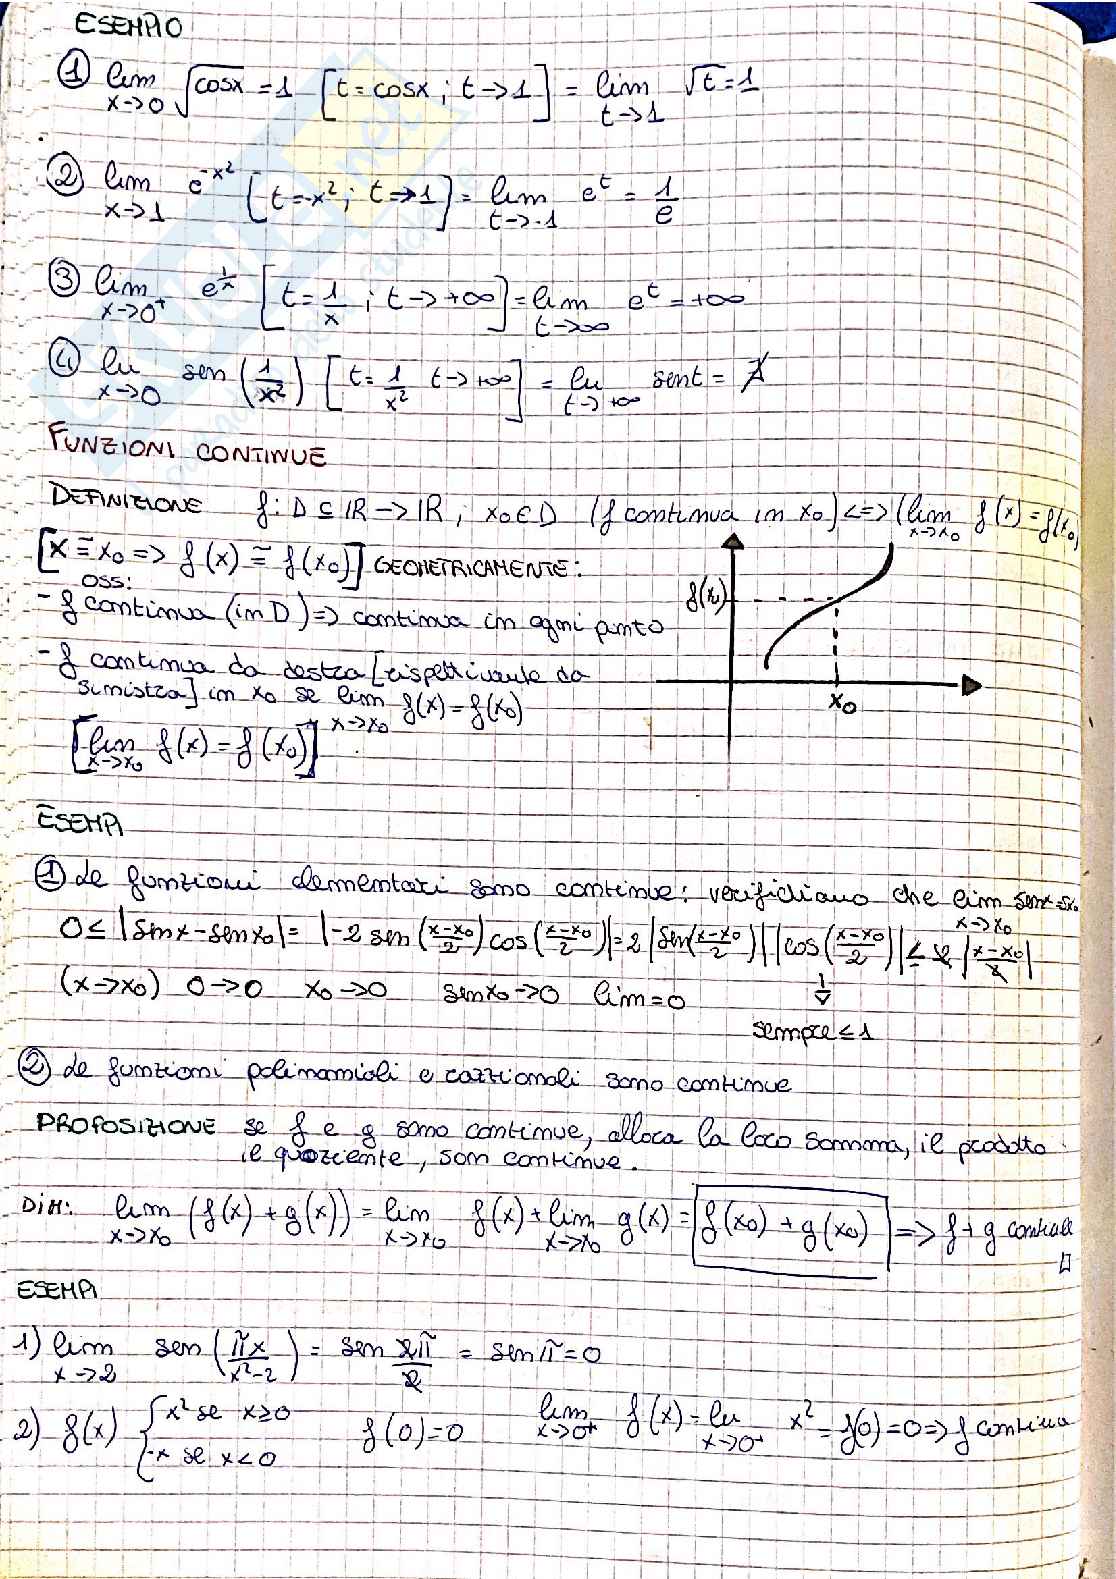 ESEMPIO
① lim x→0 √cosx = 1 [t = cosx ; t→1] = lim t→1 √t = 1
② lim x→1 e^-x² [t=-x² ; t→1] = lim t→-1 e^t = 1/e
③ lim x→0⁺ e^1/x [t = 1/x ; t→+∞] = lim t→∞ e^t = +∞
④ lu x→0 sen (1/x²) [t = 1/x² t→+∞] = lu t→+∞ sent = ∄
FUNZIONI CONTINUE
DEFINIZIONE f: D ⊆ IR → IR ; x₀ ∈ D (f continua in x₀) <=> (lim x→x₀ f(x) = f(x₀)
[x ≅ x₀ => f(x) ≅ f(x₀)] GEOMETRICAMENTE:
OSS:
- f continua (in D) => continua in ogni punto
- f continua da destra [rispettivamente da
sinistra] in x₀ se lim x→x₀ f(x) = f(x₀)
[lim x→x₀ f(x) = f(x₀)]
f(x₀)
x₀
ESEMPI
① Le funzioni elementari sono continue: verifichiamo che lim x→x₀ senx = sx₀
0 ≤ |sinx - senx₀| = |-2 sen (x-x₀/2) cos (x-x₀/2)| = 2 |sen(x-x₀/2)| |cos (x-x₀/2)| ≤ 2 |x-x₀/2|
(x→x₀) 0→0 x₀→0 senx₀→0 lim = 0
sempre ≤ 1
② Le funzioni polinomiali e razionali sono continue
PROPOSIZIONE se f e g sono continue, allora la loro somma, il prodotto
il quoziente, son continue.
DIM: lim x→x₀ (f(x) + g(x)) = lim x→x₀ f(x) + lim x→x₀ g(x) = f(x₀) + g(x₀) => f + g continue
□
ESEMPI
1) lim x→2 sen (πx/x²-2) = sen 2π/2 = senπ = 0
2) f(x) { x² se x≥0 f(0) = 0 lim x→0⁺ f(x) = lu x→0⁺ x² = f(0) = 0 => f continua
-x se x<0